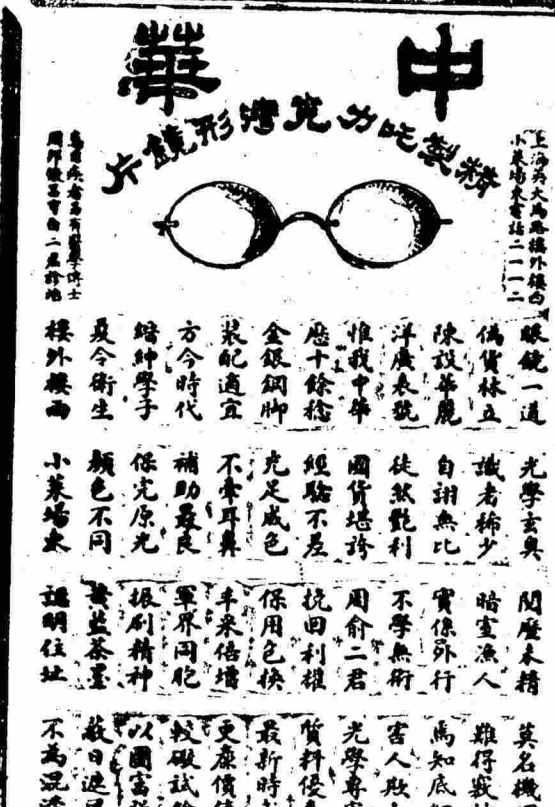 中華
精製吒力克灣形鏡片
上海英大馬路樓外樓西
小菜場東電話二一一二
眼鏡一道 光學玄奧 閱歷未精 莫名機
偽貨林立 識者稀少 暗室漁人 難得
陳設華麗 自詡無比 實係外行 焉知底
洋廣表號 徒然艷利 不學無術 害人欺
惟我中華 國貨堪誇 周俞二君 光學專
歷十餘稔 經驗不差 挽回利權 貨料優
金銀鋼脚 充足成色 保用包換 最新時
裝配適宜 不牽耳鼻 丰采倍增 更廉價
方今時代 補助最良 軍界同胞 較礮試
縉紳學子 保完原光 振刷精神 以圖富
爰今衛生 顏色不同 黃藍茶墨 蔽日避
樓外樓西 小菜場東 認明住址 不為混
目疾者另有醫學博士
周邦俊 守白二君診治